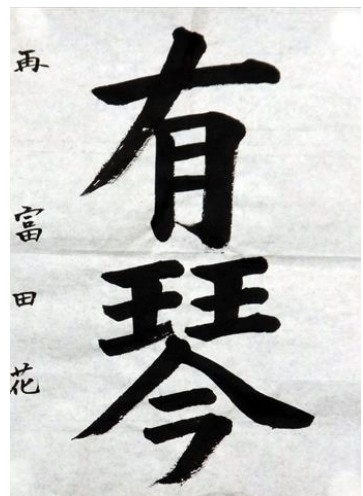 有琴
再 富田花